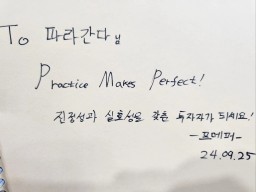 To 파라간다님
Practice Makes Perfect!
진정성과 실효성을 갖춘 투자자가 되세요!
-프메퍼-
24.09.25